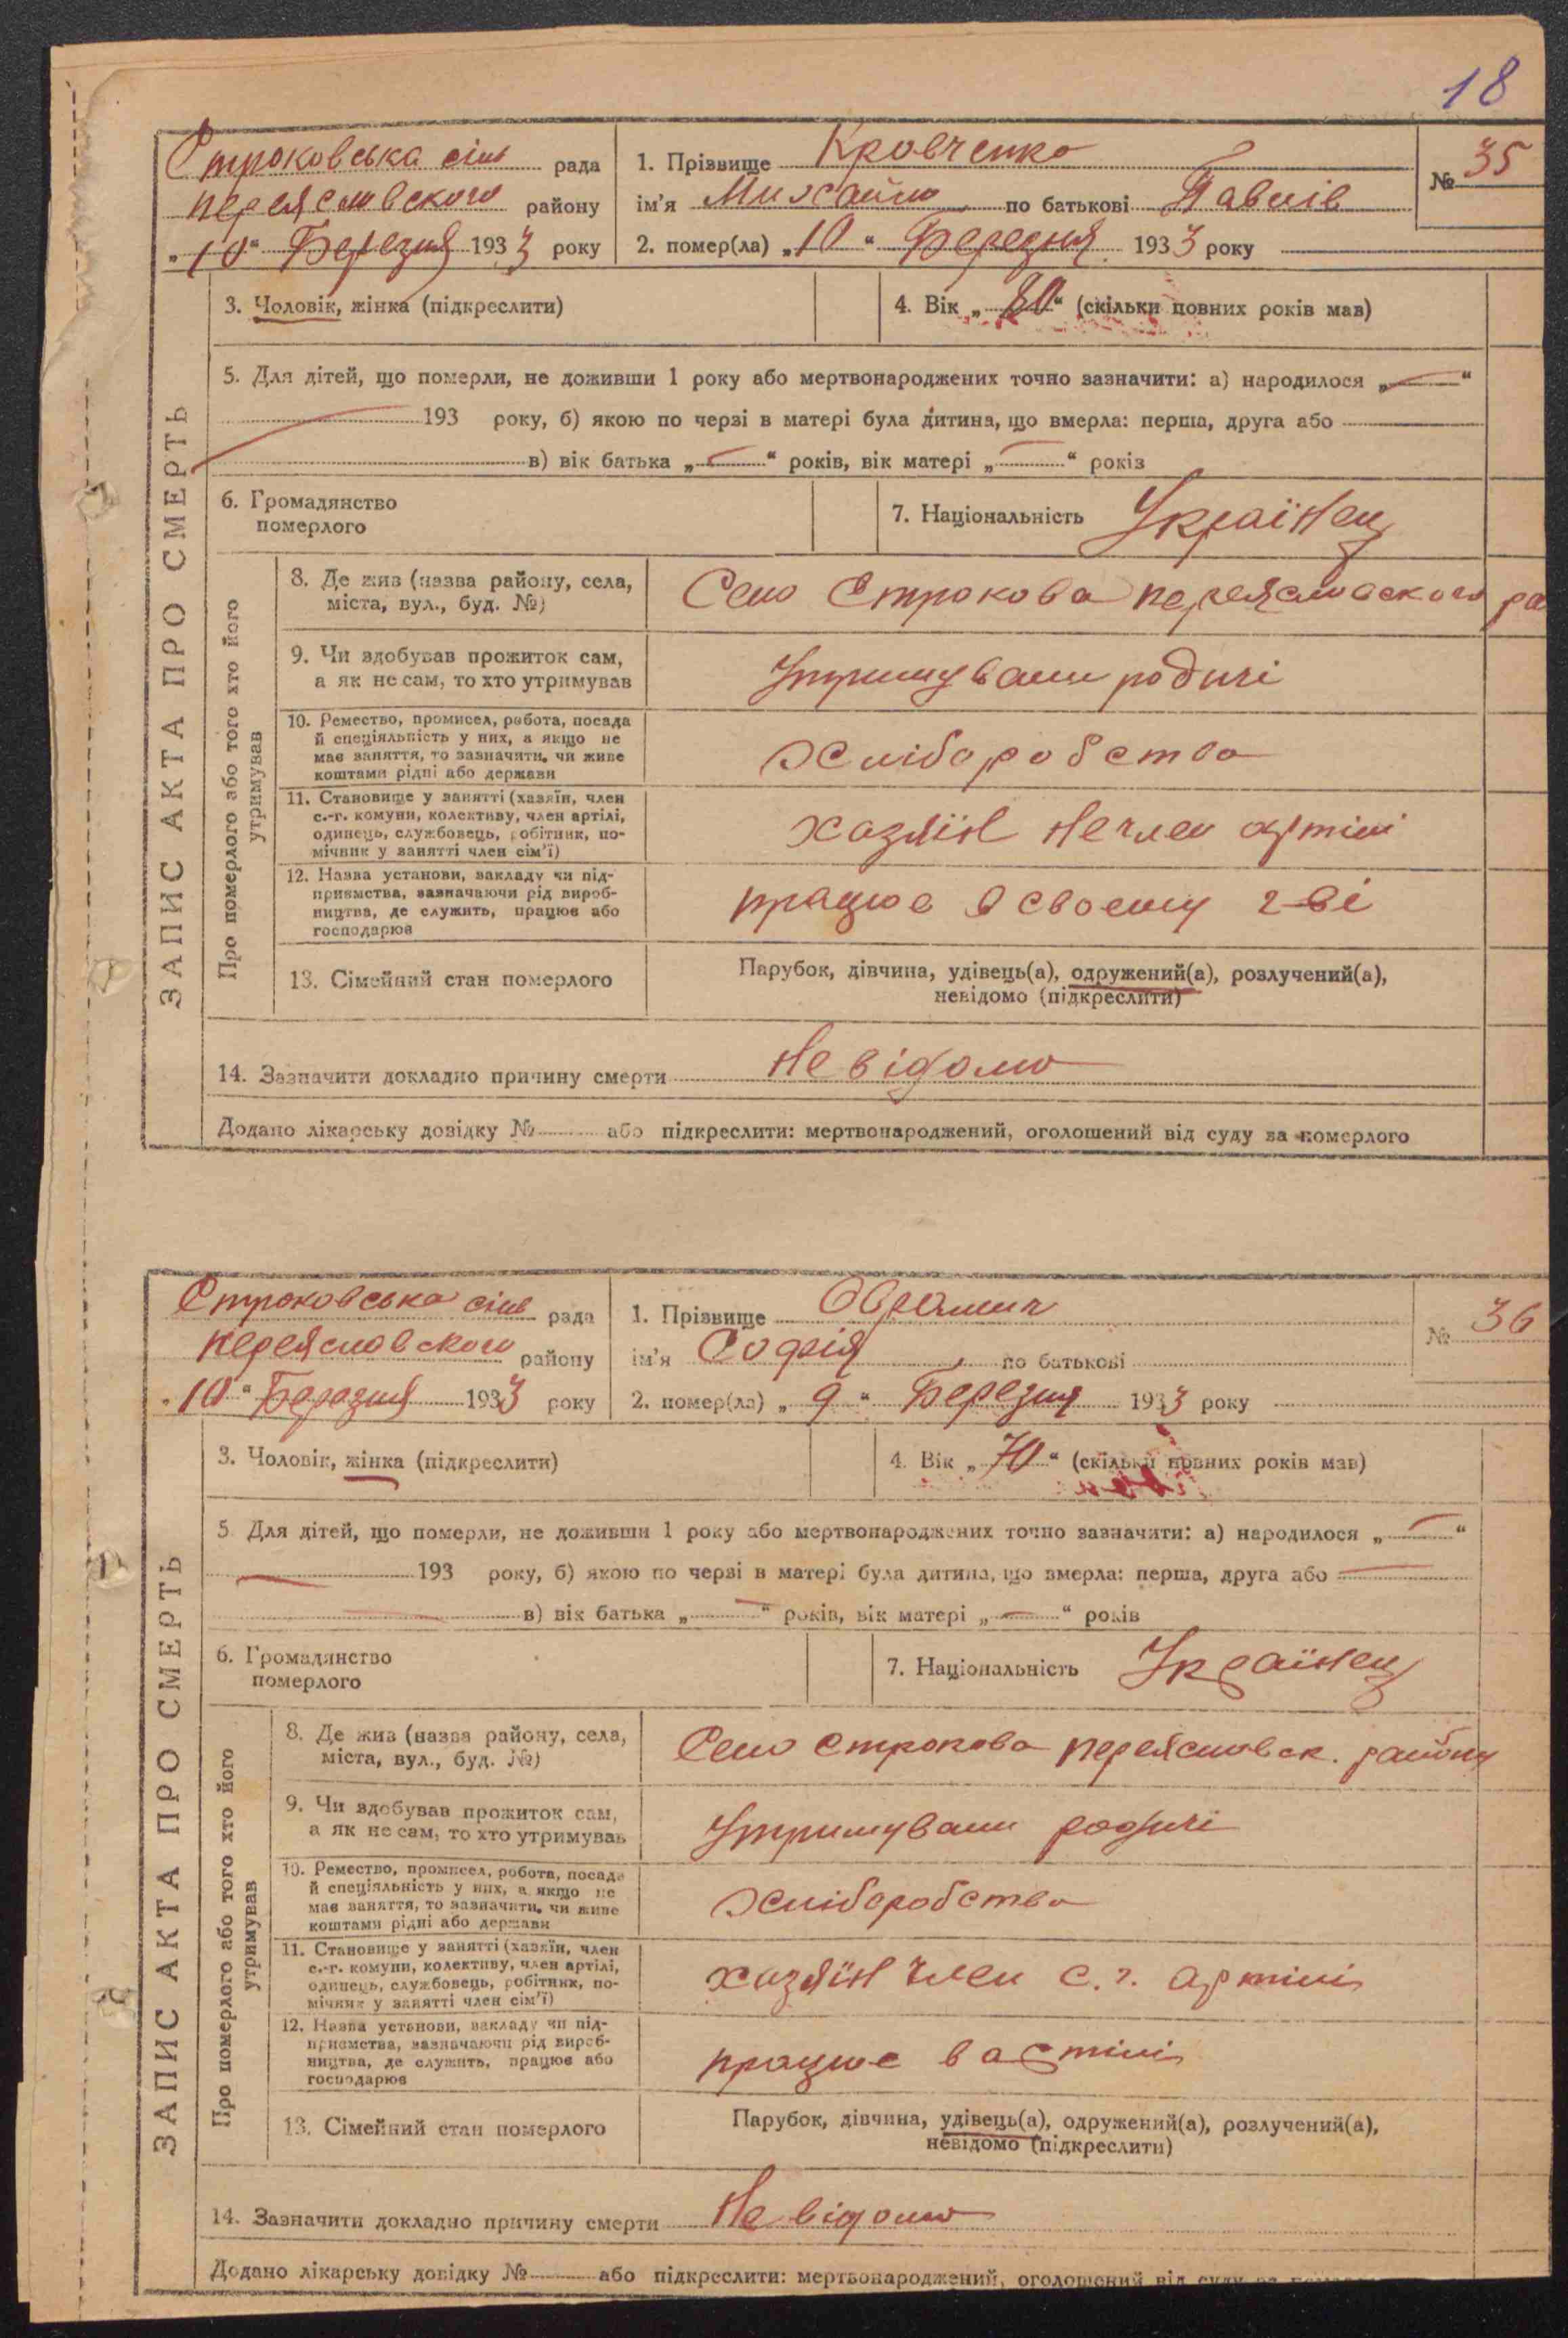 18
ЗАПИС АКТА ПРО СМЕРТЬ
Строковська сіль рада
переясловского району
„10“ Березня 1933 року
1. Прізвище Кровченко
ім'я Михайло по батькові Павлів
2. помер(ла) „10“ Березня 1933 року
№ 35
3. Чоловік, жінка (підкреслити)
4. Вік „80“ (скільки повних років мав)
5. Для дітей, що померли, не доживши 1 року або мертвонароджених точно зазначити: а) народилося „—“
193 року, б) якою по черзі в матері була дитина, що вмерла: перша, друга або
в) вік батька „—“ років, вік матері „—“ років
6. Громадянство
померлого
7. Національність Українец
Про померлого або того хто його
утримував
8. Де жив (назва району, села,
міста, вул., буд. №)
Село Строкова переясловского ра
9. Чи здобував прожиток сам,
а як не сам, то хто утримував
Утримували родичі
10. Ремество, промисел, робота, посада
й спеціяльність у них, а якщо не
має заняття, то зазначити, чи живе
коштами рідні або держави
хліборобство
11. Становище у занятті (хазяїн, член
с.-г. комуни, колективу, член артілі,
одинець, службовець, робітник, по-
мічник у занятті член сім'ї)
хазяїн не член артілі
12. Назва установи, закладу чи під-
приємства, зазначаючи рід вироб-
ництва, де служить, працює або
господарює
працює в своему г-ві
13. Сімейний стан померлого
Парубок, дівчина, удівець(а), одружений(а), розлучений(а),
невідомо (підкреслити)
14. Зазначити докладно причину смерти Не відомо
Додано лікарську довідку № або підкреслити: мертвонароджений, оголошений від суду за померлого
ЗАПИС АКТА ПРО СМЕРТЬ
Строковська сіль рада
переясловского району
„10“ Березня 1933 року
1. Прізвище Оврамич
ім'я Софія по батькові
2. помер(ла) „9“ Березня 1933 року
№ 36
3. Чоловік, жінка (підкреслити)
4. Вік „70“ (скільки повних років мав)
5. Для дітей, що померли, не доживши 1 року або мертвонароджених точно зазначити: а) народилося „—“
193 року, б) якою по черзі в матері була дитина, що вмерла: перша, друга або
в) вік батька „—“ років, вік матері „—“ років
6. Громадянство
померлого
7. Національність Українец
Про померлого або того хто його
утримував
8. Де жив (назва району, села,
міста, вул., буд. №)
Село Строкова переясловск. району
9. Чи здобував прожиток сам,
а як не сам, то хто утримував
Утримували родичі
10. Ремество, промисел, робота, посада
й спеціяльність у них, а якщо не
має заняття, то зазначити, чи живе
коштами рідні або держави
хліборобство
11. Становище у занятті (хазяїн, член
с.-г. комуни, колективу, член артілі,
одинець, службовець, робітник, по-
мічник у занятті член сім'ї)
хазяїн член с. г. артілі
12. Назва установи, закладу чи під-
приємства, зазначаючи рід вироб-
ництва, де служить, працює або
господарює
працює в артілі
13. Сімейний стан померлого
Парубок, дівчина, удівець(а), одружений(а), розлучений(а),
невідомо (підкреслити)
14. Зазначити докладно причину смерти Не відомо
Додано лікарську довідку № або підкреслити: мертвонароджений, оголошений від суду за